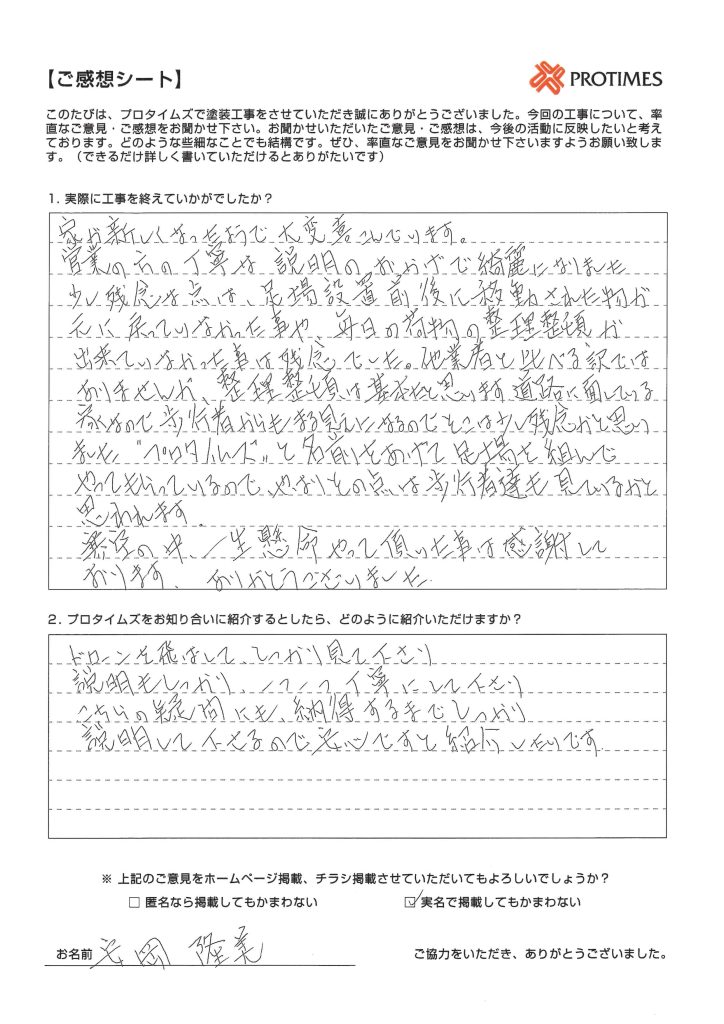 【ご感想シート】
PROTIMES
このたびは、プロタイムズで塗装工事をさせていただき誠にありがとうございました。今回の工事について、率
直なご意見・ご感想をお聞かせ下さい。お聞かせいただいたご意見・ご感想は、今後の活動に反映したいと考え
ております。どのような些細なことでも結構です。ぜひ、率直なご意見をお聞かせ下さいますようお願い致しま
す。（できるだけ詳しく書いていただけるとありがたいです）
1. 実際に工事を終えていかがでしたか？
家が新しくなったようで大変喜こんでいます。
営業の方の丁寧な説明のおかげで綺麗になりました
少し残念な点は、足場設置前後に移動された物が
元に戻っていなかった事や、毎日の荷物の整理整頓が
出来ていなかった事は残念でした。他業者と比べる訳では
ありませんが、整理整頓は基本だと思います道路に面している
家なので歩行者からもまる見えになるのでそこは少し残念かと思い
ました"プロタイムズ"と名前をあげて足場を組んで
やってもらっているので、やはりその点は歩行者達も見ているかと
思われます。
の中、一生懸命やって頂いた事は感謝して
おります、ありがとうございました
2. プロタイムズをお知り合いに紹介するとしたら、どのように紹介いただけますか？
ドローンを飛ばして、しっかり見て下さり
説明もしっかり、一つ一つ丁寧にして下さり
こちらの疑問にも、納得するまでしっかり
説明して下さるので安心ですと紹介したいです
※ 上記のご意見をホームページ掲載、チラシ掲載させていただいてもよろしいでしょうか？
□ 匿名なら掲載してもかまわない
☑ 実名で掲載してもかまわない
お名前 岡 隆美
ご協力をいただき、ありがとうございました。